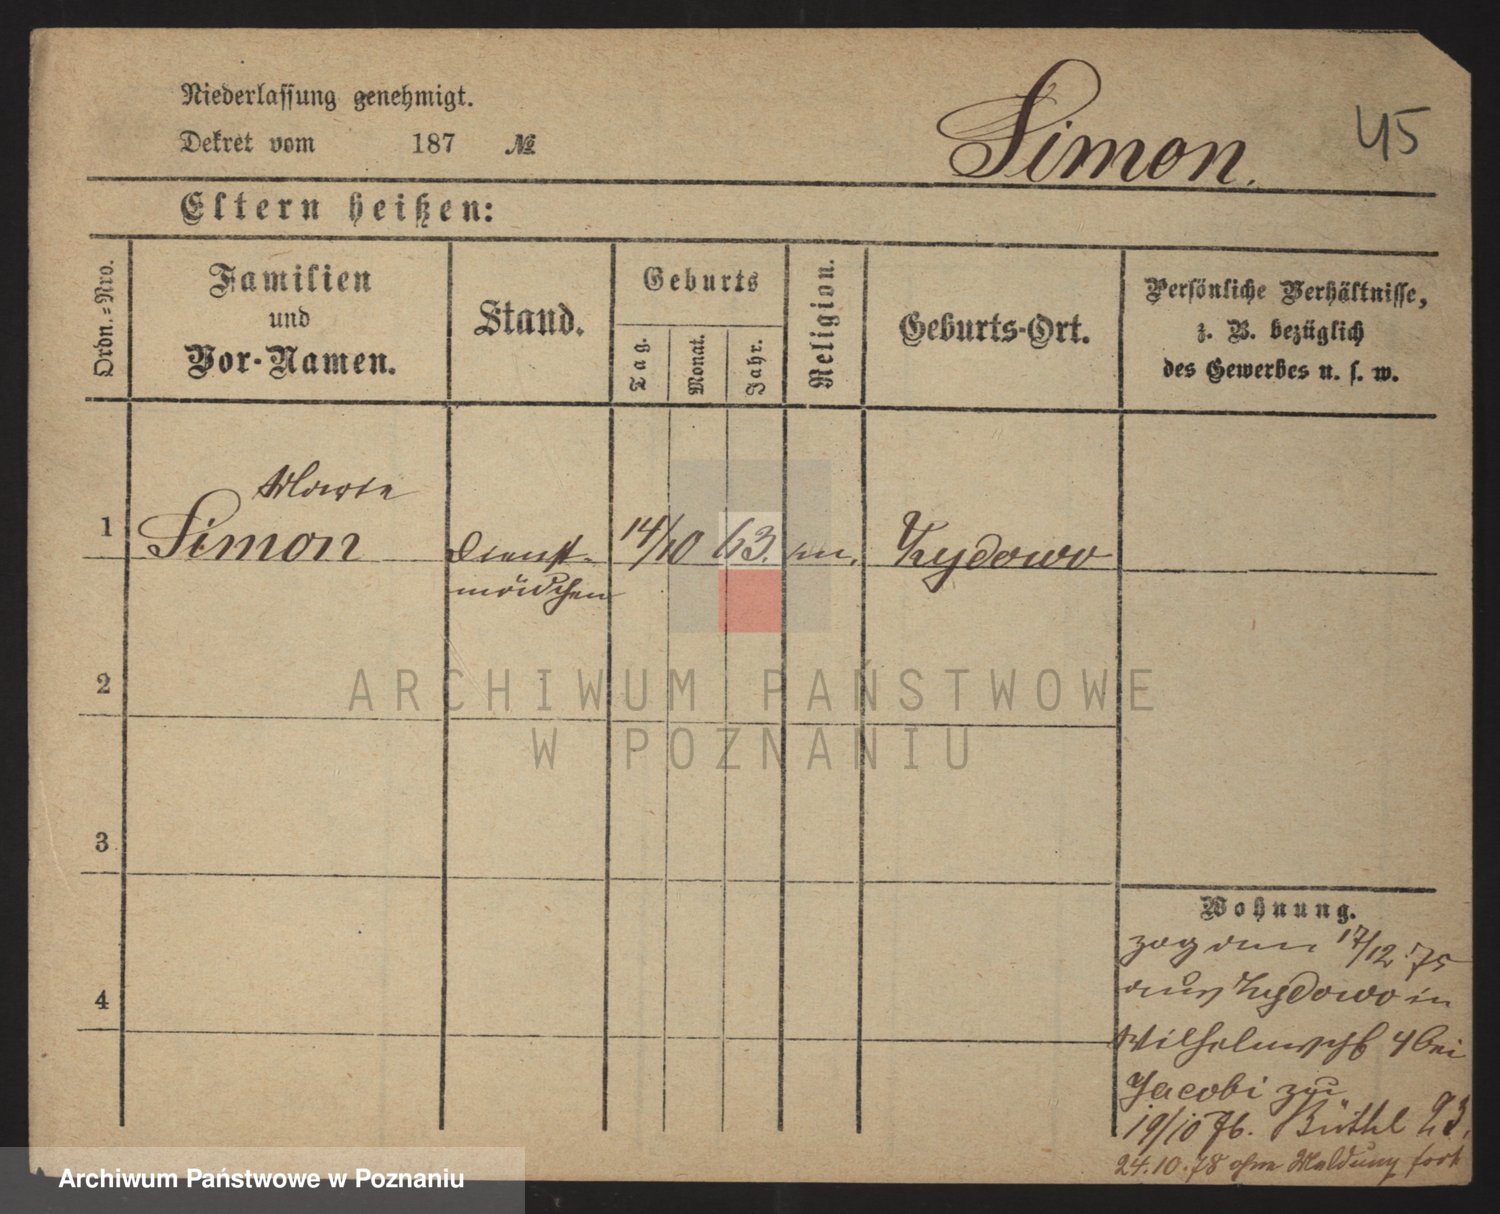 Niederlassung genehmigt.
Dekret vom 187 №
Simon.
45
Eltern heißen:
Ordn.=Nro.
Familien
und
Vor-Namen.
Stand.
Geburts
Tag.
Monat.
Jahr.
Religion.
Geburts-Ort.
Persönliche Verhältnisse,
z. B. bezüglich
des Gewerbes u. s. w.
Marie
1 Simon Dienst- 14/10 63. Zydowo
mädchen
2
3
4
Wohnung.
zog am 17/12 75
aus Zydowo in
Wilhelmsstr 4 bei
Jacobi zu
19/10 76. Büttl 23.
24.10.78 ohne Meldung fort
ARCHIWUM PAŃSTWOWE
W POZNANIU
Archiwum Państwowe w Poznaniu